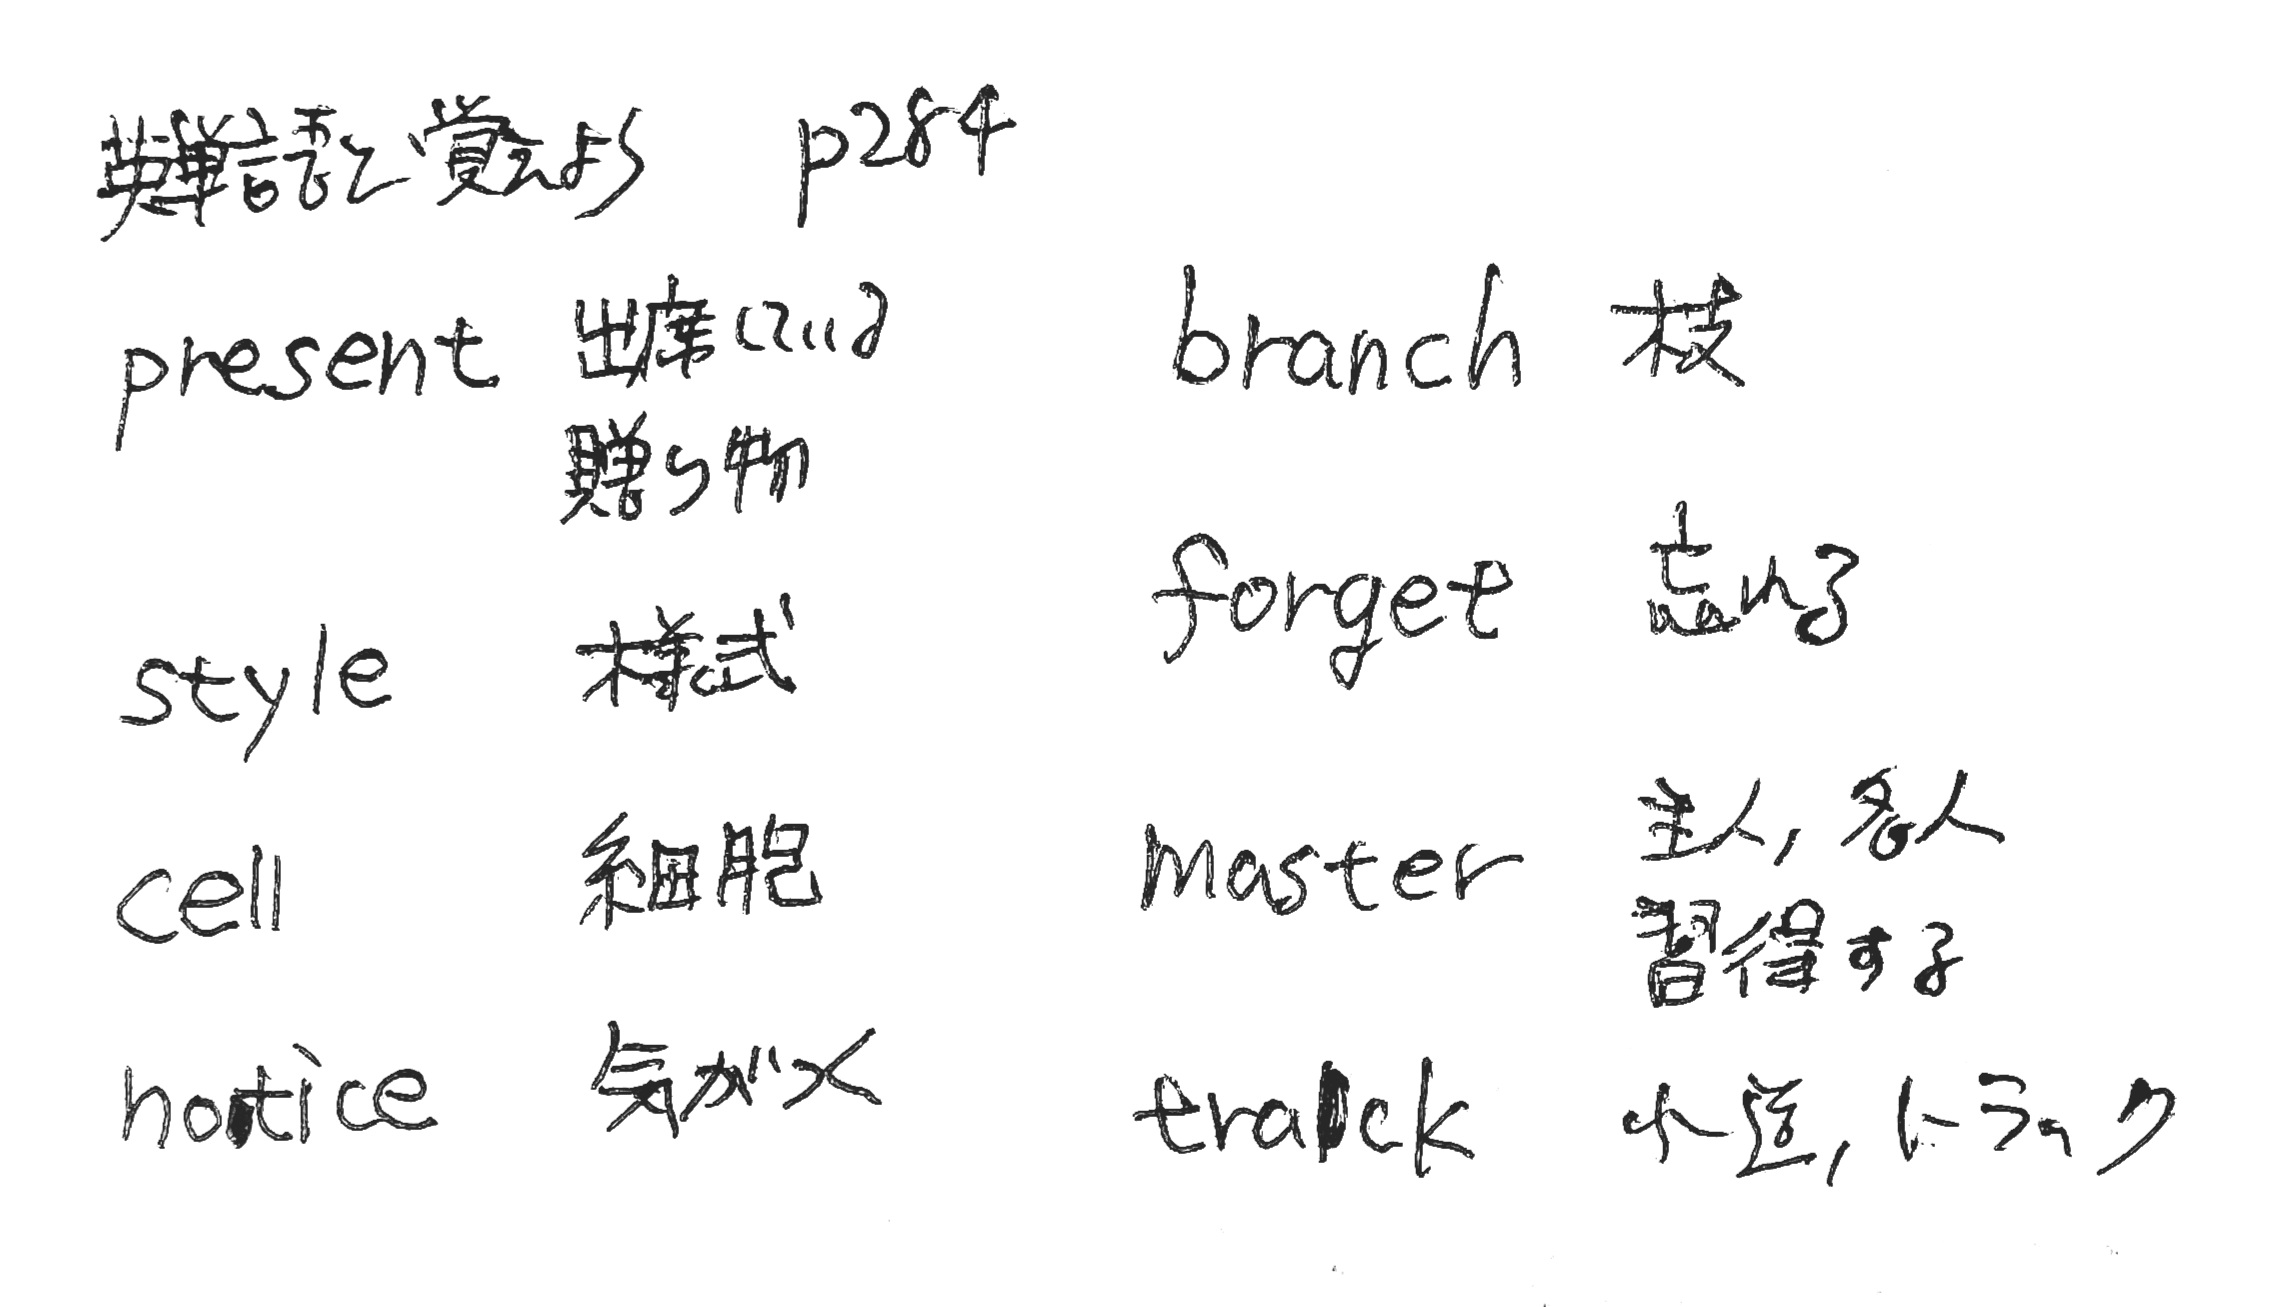 英単語を覚えよう p284
present 出席している
贈り物
style 様式
cell 細胞
notice 気がつく
branch 枝
forget 忘れる
master 主人, 名人
習得する
track 小道, トラック